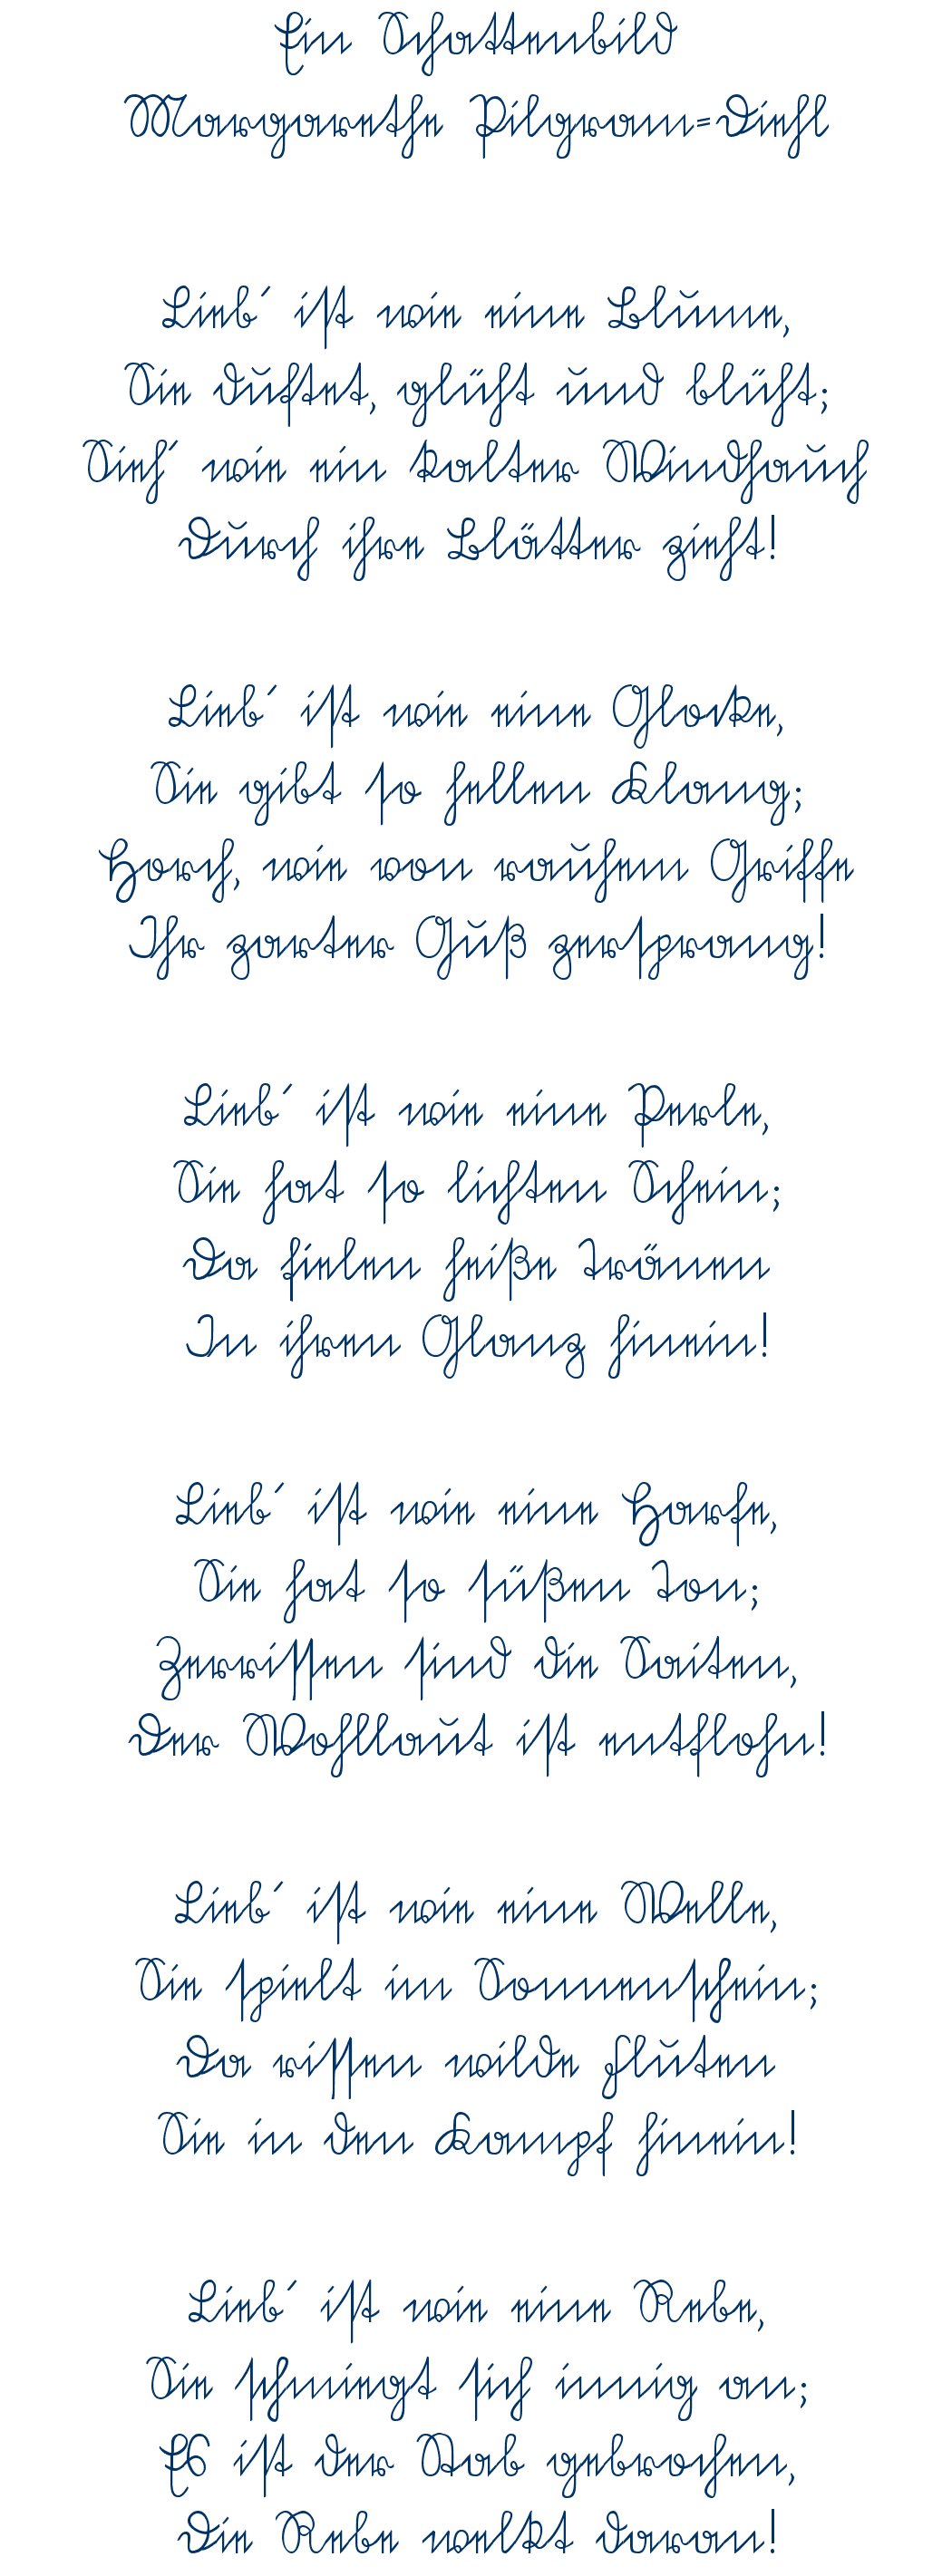 Ein Schattenbild
Margarethe Pilgram=Diehl
Lieb´ ist wie eine Blume,
Sie duftet, glüht und blüht;
Sieh´ wie ein kalter Windhauch
Durch ihre Blätter zieht!
Lieb´ ist wie eine Glocke,
Sie gibt so hellen Klang;
Horch, wie von rauhem Griffe
Ihr zarter Guß zersprang!
Lieb´ ist wie eine Perle,
Sie hat so lichten Schein;
Da fielen heiße Tränen
In ihren Glanz hinein!
Lieb´ ist wie eine Harfe,
Sie hat so süßen Ton;
Zerrissen sind die Saiten,
Der Wohllaut ist entflohn!
Lieb´ ist wie eine Welle,
Sie spielt im Sonnenschein;
Da rissen wilde Fluten
Sie in den Kampf hinein!
Lieb´ ist wie eine Rebe,
Sie schmiegt sich innig an;
Es ist der Stab gebrochen,
Die Rebe welkt daran!